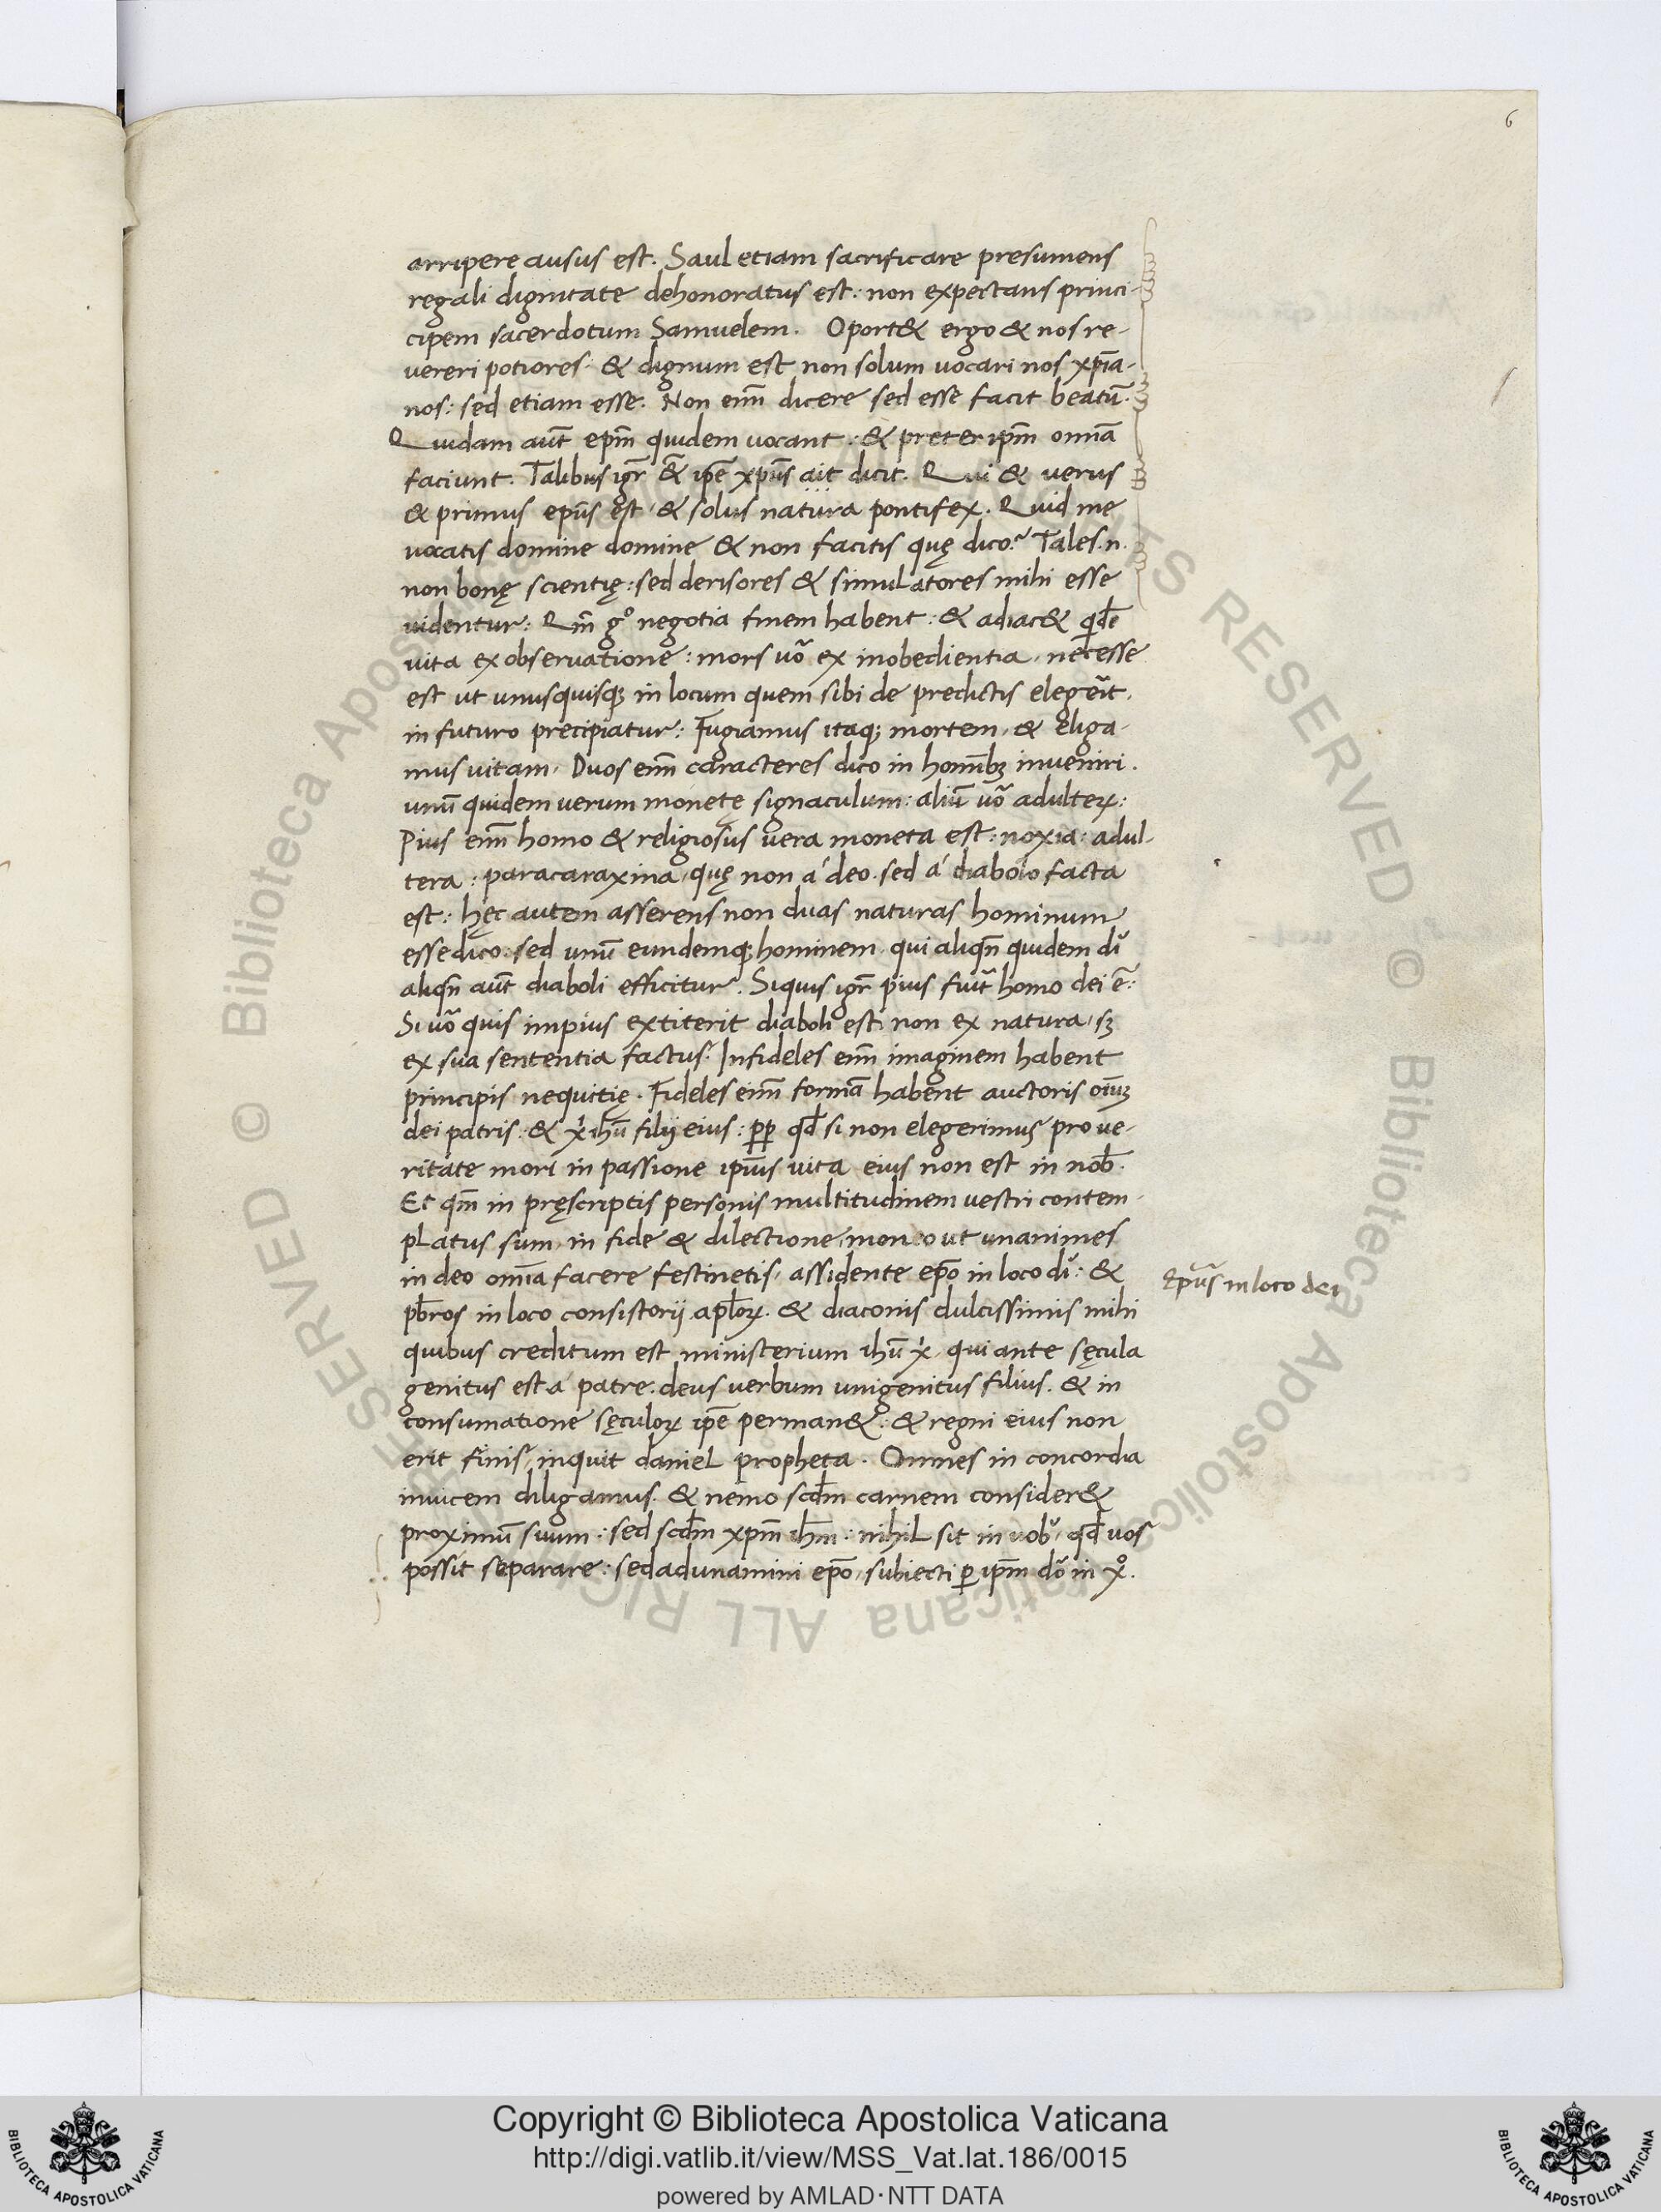 6
arripere ausus est. Saul etiam sacrificare presumens
regali dignitate dehonoratus est: non expectans princi-
cipem sacerdotum Samuelem. Oport& ergo & nos re-
vereri potiores. & dignum est non solum vocari nos xp̄ia-
nos: sed etiam esse. Non eni᷑m dicere sed esse facit beatū.
Quidam aūt ep̄m quidem vocant: & preter ip̄m omīa
faciunt. Talibus igr̄ &̄ ip̄e xp̄us ait dicit. Qui & verus
& primus ep̄us est & solus natura pontifex. Quid me
vocatis domine domine & non facitis quę dico? Tales .n.
non bonę scientię: sed derisores & simulatores mihi esse
videntur: Qm̄ gº negotia finem habent: & adiac& qđe
vita ex observatione: mors vō ex inobedientia, necesse
est ut unusquisq; in locum quem sibi de predictis elegēit,
in futuro precipiatur: Fugiamus itaq; mortem, & eliga-
mus vitam, Duos enīm caracteres dico in homīb; inveniri.
unū quidem verum monetę signaculum: aliū vō adulteꝝ:
Pius enīm homo & religiosus vera moneta est: noxia: adul-
tera: paracaraxina, quę non á deo. sed á diabolo facta
est: hęc autem asserens non duas naturas hominum
esse dico: sed unū eundemq; hominem, qui aliqn̄ quidem di᷑
aliqn̄ aūt diaboli efficitur. Siquis igr̄ pius fuit᷑ homo dei ē:
Si vō quis impius extiterit diaboli est, non ex natura, s;
ex sua sententia factus. Infideles enīm imaginem habent
principis nequitię. Fideles enīm formā habent auctoris oīu;
dei patris: & x̓ ihū filij eius: ꝓꝑ qđ si non elegerimus pro ve-
ritate mori in passione ipīus vita eius non est in nob̄.
Et qm̄ in pręscriptis personis multitudinem vestri contem-
platus sum, in fide & dilectione, moneo ut unanimes
in deo omīa facere festinetis, assidente ep̄o in loco di᷑: &
Ep̄us in loco dei
pb̄ros in loco consistorij apl̄oꝝ. & diaconis dulcissimis mihi
quibus creditum est ministerium ihū x̓, qui ante sęcula
genitus est á patre. deus verbum unigenitus filius. & in
consumatione sęculoꝝ ip̄e perman&: & regni eius non
erit finis, inquit daniel propheta. Omnes in concordia
invicem diligamus. & nemo scđm carnem consider&
proximū suum: sed scđm xp̄m ih̄m: nihil sit in vob᷑, qđ vos
possit separare: sed adunamini ep̄o, subiecti ꝑ ip̄m dō in xº.
© Biblioteca Apostolica Vaticana ALL RIGHTS RESERVED
© Biblioteca Apostolica Vaticana ALL RIGHTS RESERVED
Copyright © Biblioteca Apostolica Vaticana
http://digi.vatlib.it/view/MSS_Vat.lat.186/0015
powered by AMLAD·NTT DATA
BIBLIOTECA APOSTOLICA VATICANA
BIBLIOTECA APOSTOLICA VATICANA